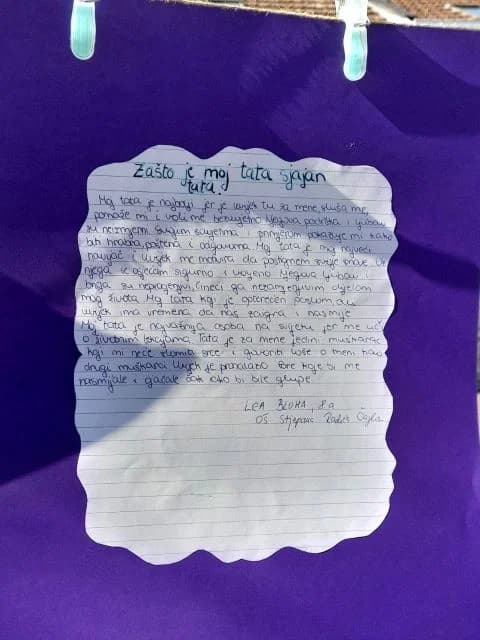 Zašto je moj tata sjajan
tata?
Moj tata je najbolji jer je uvijek tu za mene, sluša me,
pomaže mi i voli me bezuvjetno. Njegova podrška i ljubav
su neizmjerni. Svojim savjetima i primjerom pokazuje mi kako
biti hrabra, poštena i odgovorna. Moj tata je moj najveći
navijač i uvijek me motivira da postignem svoje snove. Uz
njega se osjećam sigurno i voljeno. Njegova ljubav i
briga su neprocjenjivi, čineći ga nezamjenjivim dijelom
mog života. Moj tata koji je opterećen poslom
uvijek ima vremena da nas zaigra i nasmije.
Moj tata je najvažnija osoba na svijetu jer me uči
o životnim lekcijama. Tata je za mene jedini muškarac
koji mi neće slomiti srce i govoriti loše o meni kao
drugi muškarci. Uvijek je pronalazio fore koje bi me
nasmijale i gačale čak ako bi bile glupe.
LEA BLOHA, 8.a
OŠ Stjepana Radića Čaglin